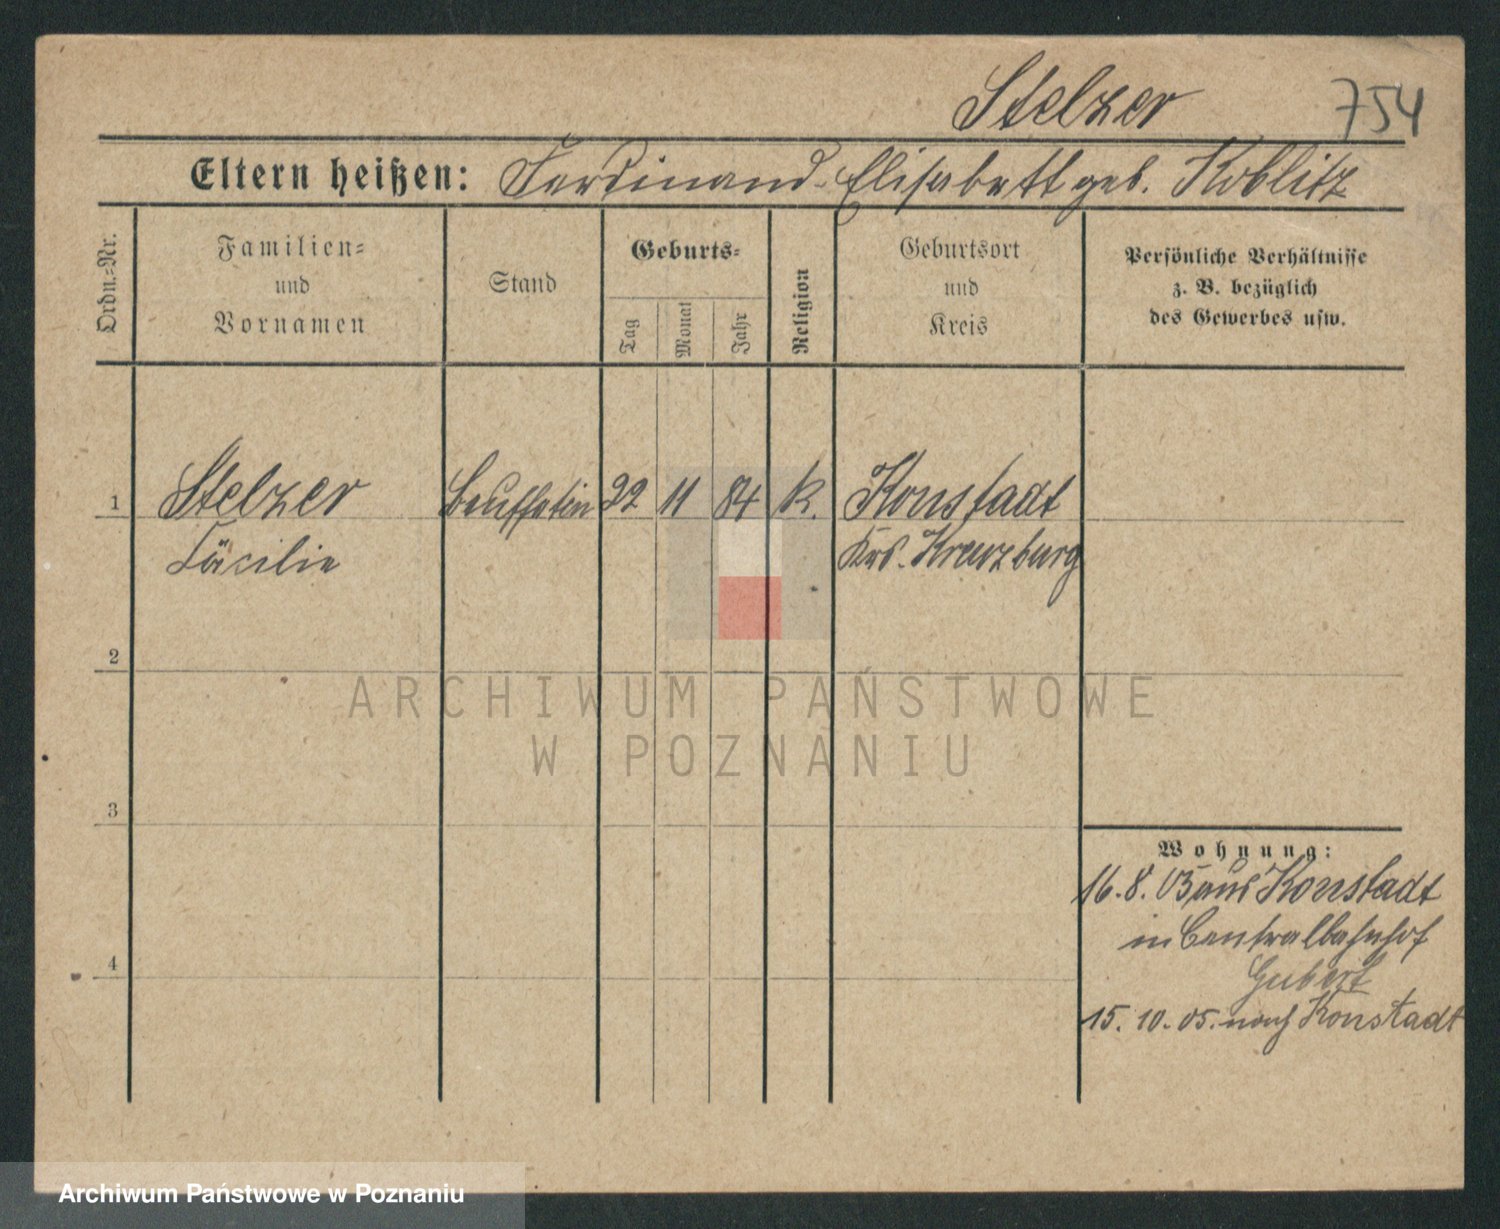 Stelzer 754
Eltern heißen: Ferdinand. Elisabett geb. Koblitz
Ordn.-Nr.
Familien-
und
Vornamen
Stand
Geburts-
Tag
Monat
Jahr
Religion
Geburtsort
und
Kreis
Persönliche Verhältnisse
z. B. bezüglich
des Gewerbes usw.
1 Stelzer 22 11 84 K. Konstadt
Cäcilie Krs. Kreuzburg
2
ARCHIWUM PAŃSTWOWE
W POZNANIU
3
Wohnung:
16.8.03 aus Konstadt
in Centralbahnhof
4
15.10.05. nach Konstadt
Archiwum Państwowe w Poznaniu